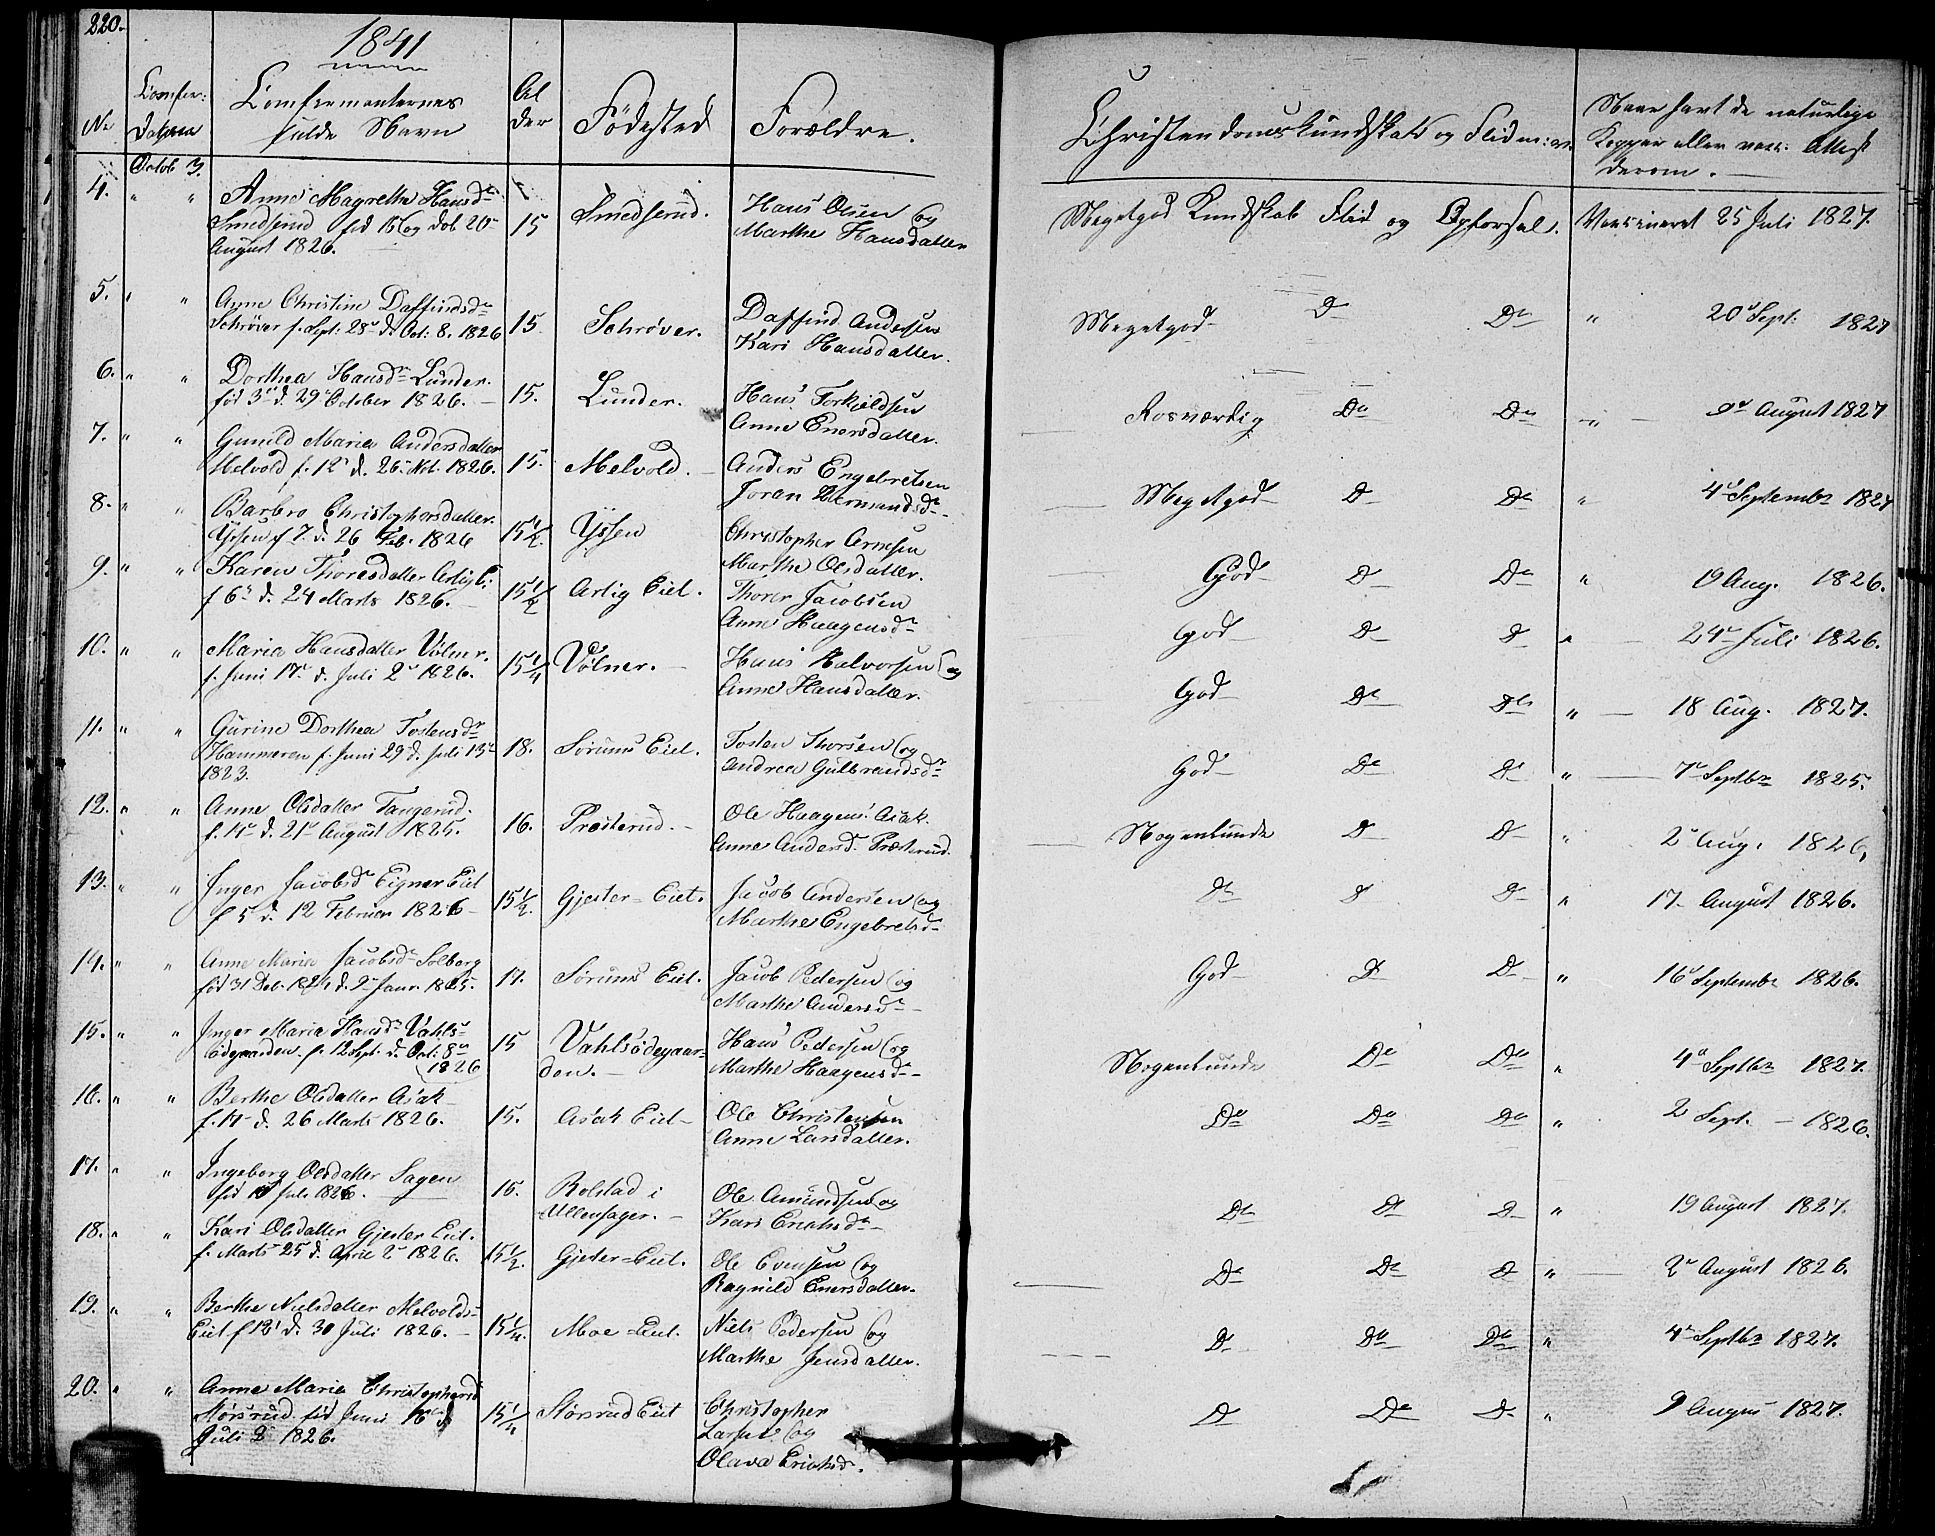 220.
1841
No
Confir:
Datum
Confirmanternes
fulde Navn
Al
der
Födested
Forældre.
Christendomskundskab og Flid m: v.
Naar havt de naturlige
Kopper eller vacc: Attest
derom.
Octob 3.
4. " " Anne Magrethe Hansdr
Smedserud fød 15 og döb 20
August 1826.
15
Smedserud.
Hans Olsen og
Marthe Hansdatter
Megetgod Kundskab Flid og Opforsel.
Vaccineret 25 Juli 1827.
5. " " Anne Christine Daffindsdr
Schröver f. Sept: 28 d. Oct: 8. 1826
15
Schröver.
Daffind Andersen
Kari Hansdatter.
Megetgod Do Do
" 20 Sept: 1827
6. " " Dorthea Hansdr Lunder.
fød 3 d. 29 October 1826.
15.
Lunder.
Hans Torkildsen
Anne Enersdatter.
Rosværdig Do Do
" August 1827
7. " " Gunild Maria Andersdatter
Melvold f. 12 d. 26 Nov. 1826.
15.
Melvold.
Anders Engebretsen
Joran Hermandsdr
Megetgod Do Do
" 4 Septembr 1827
8. " " Barbro Christophersdatter.
Yssen f 7 d. 26 Feb. 1826
15½
Yssen
Christopher Arnesen
Marthe Olsdatter.
God Do Do
" 19 Aug. 1826.
9. " " Karen Thoresdatter Arlig E:
f 6 d. 24 Marts 1826.
15½
Arlig Eiet.
Thorer Jacobsen
Anne Haagensdr
God Do Do
" 24 Juli 1826.
10. " " Maria Hansdatter Völner.
f. Juni 17 d. Juli 2 1826.
15¼
Völner.
Hans Halvorsen og
Anne Hansdatter.
God Do Do
" 18 Aug. 1827.
11. " " Gurine Dorthea Tostensdr
Hammeren f. Juni 29 d. Juli 13
1823.
18.
Sörums Eiet.
Tosten Thorsen og
Andrea Gulbrandsdr
God Do Do
" 7 Septbr 1825.
12. " " Anne Olsdatter Tangerud.
f. 14 d. 21 August 1825.
16.
Præsterud.
Ole Haagens. Asak
Anne Andersd. Præsterud.
Nogenlunde Do Do
" 2 Aug. 1826,
13. " " Inger Jacobsdr Eigner Eiet
f 5 d. 12 Februar 1826
15½
Gjester=Eiet.
Jacob Andersen og
Marthe Engebretsdr
Do Do Do
" 17 August 1826.
14. " " Anne Maria Jacobsdr Solberg
fød 31 Deb. 1824 d. 2 Janr. 1825.
17.
Sörums Eiet.
Jacob Pedersen og
Marthe Andersdr
God Do Do
" 16 Septembr 1826.
15. " " Inger Maria Hansdr Vahls=
ödegaarden. f. 12 Sept. d. Oct: 8
1826
15
Vahlsödegaar=
den.
Hans Pedersen og
Marthe Haagensdr
Nogenlunde Do Do
" 4 Septbr 1827.
16. " " Berthe Olsdatter Asak
f. 14 d. 26 Marts 1826.
15.
Asak Eiet
Ole Christensen
Anne Larsdatter.
Do Do Do
" 2 Sept. 1826.
17. " " Ingeborg Olsdatter Sagen
fød Juli 1826.
15.
Rolstad i
Ullensager.
Ole Amundsen og
Kari Erichsdr
Do Do Do
" 19 August 1827.
18. " " Kari Olsdatter Gjester Eiet.
f. Marts 25 d. April 2 1826.
15½
Gjester=Eiet.
Ole Evensen og
Ragnild Enersdatter.
Do Do Do
" 2 August 1826.
19. " " Berthe Nielsdatter Melvolds=
Eiet f 12 d. 30 Juli 1826.
15¼
Moe=Eiet.
Niels Pedersen og
Marthe Jensdatter.
Do Do Do
" 4 Septbr 1827.
20. " " Anne Maria Christophersd
Störsrud. fød Juni 16 d
Juli 2 1826.
15¼
Störsrud Eiet
Christopher
Larsen og
Olava Erichsd.
Do Do Do
" 9 Augus 1827.